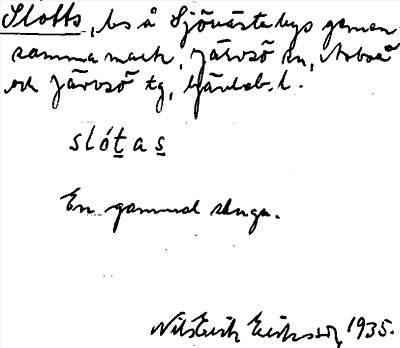 Slotts, bs å Sjövästa bys gemen-
samma mark, Järvsö sn, Arbrå
och Järvsö tg, Gävleb. l.
slót̲as̲
En gammal stuga.
Nils Erik Eriksson, 1935.